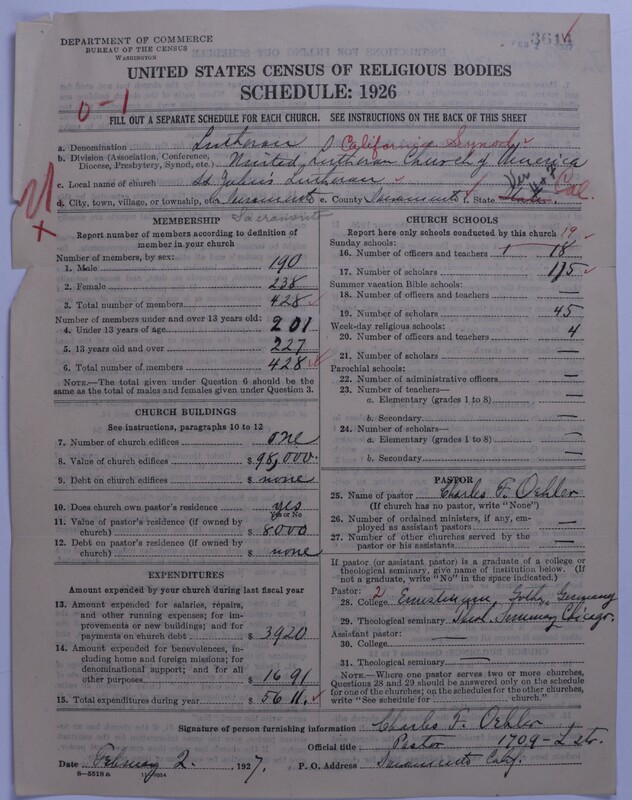 DEPARTMENT OF COMMERCE
BUREAU OF THE CENSUS
WASHINGTON
UNITED STATES CENSUS OF RELIGIOUS BODIES
SCHEDULE: 1926
0-1
FILL OUT A SEPARATE SCHEDULE FOR EACH CHURCH. SEE INSTRUCTIONS ON THE BACK OF THIS SHEET
a. Denomination Lutheran California Synod
b. Division (Association, Conference, Diocese, Presbytery, Synod, etc.) United Lutheran Church of America
c. Local name of church Lutheran
d. City, town, village, or township, etc. Sacramento e. County Sacramento f. State Cal.
Sacramento
MEMBERSHIP
Report number of members according to definition of member in your church
Number of members, by sex:
1. Male 190
2. Female 238
3. Total number of members 428
Number of members under and over 13 years old:
4. Under 13 years of age 201
5. 13 years old and over 227
6. Total number of members 428
NOTE.—The total given under Question 6 should be the same as the total of males and females given under Question 3.
CHURCH BUILDINGS
See instructions, paragraphs 10 to 12
7. Number of church edifices one
8. Value of church edifices $ 98,000
9. Debt on church edifices $ none
10. Does church own pastor's residence yes
Yes or No
11. Value of pastor's residence (if owned by church) $ 8000
12. Debt on pastor's residence (if owned by church) $ none
EXPENDITURES
Amount expended by your church during last fiscal year
13. Amount expended for salaries, repairs, and other running expenses; for improvements or new buildings; and for payments on church debt $ 3920
14. Amount expended for benevolences, including home and foreign missions; for denominational support; and for all other purposes $ 1691
15. Total expenditures during year $ 5611.
CHURCH SCHOOLS
Report here only schools conducted by this church 19
Sunday schools:
16. Number of officers and teachers 1 18
17. Number of scholars 175
Summer vacation Bible schools:
18. Number of officers and teachers —
19. Number of scholars 45
Week-day religious schools:
20. Number of officers and teachers 4
21. Number of scholars —
Parochial schools:
22. Number of administrative officers —
23. Number of teachers—
a. Elementary (grades 1 to 8) —
b. Secondary —
24. Number of scholars—
a. Elementary (grades 1 to 8) —
b. Secondary —
PASTOR
25. Name of pastor Charles F. Oehler
(If church has no pastor, write "None")
26. Number of ordained ministers, if any, employed as assistant pastors —
27. Number of other churches served by the pastor or his assistants —
If pastor (or assistant pastor) is a graduate of a college or theological seminary, give name of institution below. (If not a graduate, write "No" in the space indicated.)
Pastor: 2
28. College Gotha, Germany
29. Theological seminary Theol. Seminary Chicago.
Assistant pastor:
30. College —
31. Theological seminary —
NOTE.—Where one pastor serves two or more churches, Questions 28 and 29 should be answered only on the schedule for one of the churches; on the schedules for the other churches, write "See schedule for church."
Signature of person furnishing information Charles F. Oehler
Official title Pastor 1709 - L str.
Date February 2. 1927. P. O. Address Sacramento Calif.
8—5518a